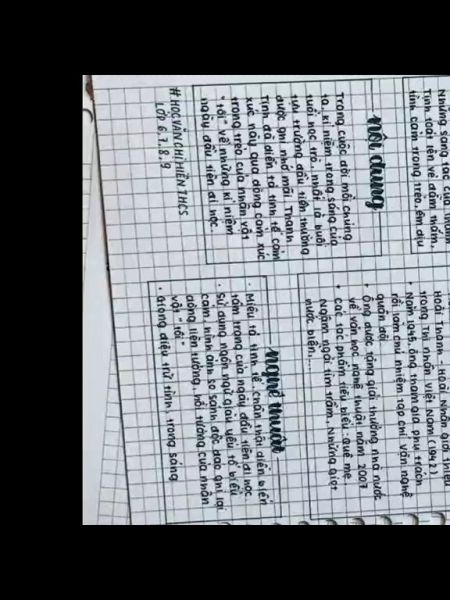 Những sáng tác của Thanh
Tịnh toát lên vẻ đằm thắm,
tình cảm trong trẻo, êm dịu
nội dung
Trong cuộc đời mỗi chúng
ta, kỉ niệm trong sáng của
tuổi học trò, nhất là buổi
tựu trường đầu tiên thường
được ghi nhớ mãi. Thanh
Tịnh đã diễn tả tinh tế cảm
xúc này qua dòng cảm xúc
trong trẻo của nhân vật
"tôi" về những kỉ niệm
ngày đầu tiên đi học.
#HỌC VĂN CHỊ HIÊN THCS
LỚP 6,7,8,9
Hoài Thanh - Hoài Chân giới thiệu
trong Thi nhân Việt Nam (1942)
• Năm 1945, ông tham gia phụ trách
rồi làm chủ nhiệm tạp chí văn nghệ
quân đội
• Ông được tặng giải thưởng nhà nước
về văn học nghệ thuật năm 2007
• Các tác phẩm tiêu biểu: Quê mẹ,
Ngậm ngải tìm trầm, Những giọt
nước biển,...
nghệ thuật
• Miêu tả tinh tế, chân thật diễn biến
tâm trạng của ngày đầu tiên đi học
• Sử dụng ngôn ngữ giàu yếu tố biểu
cảm, hình ảnh so sánh độc đáo ghi lại
dòng liên tưởng, hồi tưởng của nhân
vật "tôi"
• Giọng điệu trữ tình, trong sáng